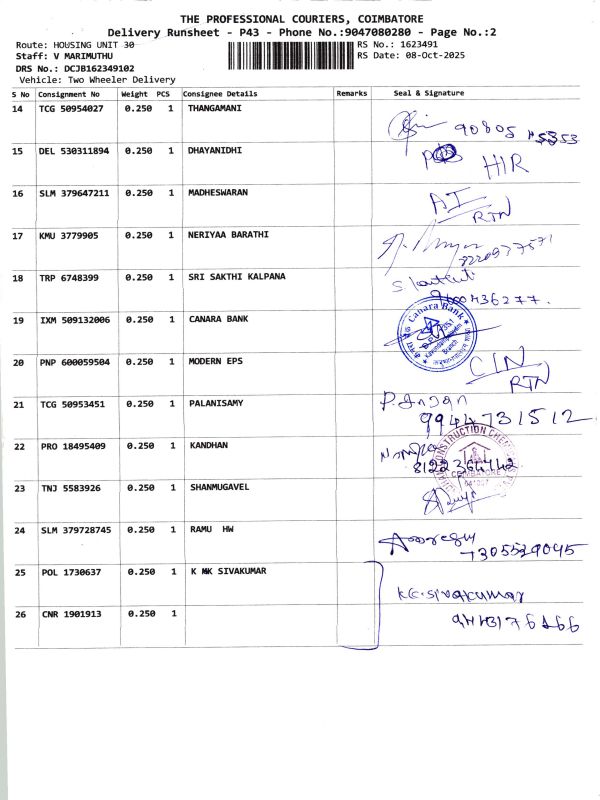 THE PROFESSIONAL COURIERS, COIMBATORE
Delivery Runsheet - P43 - Phone No.:9047080280 - Page No.:2
Route: HOUSING UNIT 30
RS No.: 1623491
Staff: V MARIMUTHU
RS Date: 08-Oct-2025
DRS No.: DCJB162349102
Vehicle: Two Wheeler Delivery
S No Consignment No Weight PCS Consignee Details Remarks Seal & Signature
14 TCG 50954027 0.250 1 THANGAMANI
15 DEL 530311894 0.250 1 DHAYANIDHI HIR
16 SLM 379647211 0.250 1 MADHESWARAN AI RTN
17 KMU 3779905 0.250 1 NERIYAA BARATHI
18 TRP 6748399 0.250 1 SRI SAKTHI KALPANA
19 IXM 509132006 0.250 1 CANARA BANK Canara Bank
20 PNP 600059504 0.250 1 MODERN EPS CIN RTN
21 TCG 50953451 0.250 1 PALANISAMY 9944731512
22 PRO 18495409 0.250 1 KANDHAN 8122364442
23 TNJ 5583926 0.250 1 SHANMUGAVEL
24 SLM 379728745 0.250 1 RAMU HW 7305529045
25 POL 1730637 0.250 1 K MK SIVAKUMAR K.C.Sivakumar
26 CNR 1901913 0.250 1